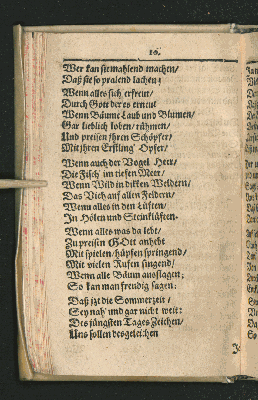 10.
Wer kan sie mahlend machen/
Daß sie so pralend lachen;
Wenn alles sich erfreut/
Durch Gott der es erneut
Wenn Bäume Laub und Blumen/
Gar lieblich loben/ rühmen/
Und preisen ihren Schöpfer/
Mit ihren Erstling' Opfer/
Wenn auch der Vogel Heer/
Die Fisch' im tiefen Meer/
Wenn Wild in dikken Weldern/
Das Vieh auf allen Feldern/
Wenn alles in den Lüften/
In Hölen und Steinklüften.
Wenn alles was da lebt/
Zu preisen GOtt anhebt
Mit spielen/ hüpfen springend/
Mit vielen Rufen singend/
Wenn alle Bäum ausslagen;
So kan man freudig sagen:
Daß itzt die Sommerzeit/
Sey nah' und gar nicht weit:
Des jüngsten Tages Zeichen/
Uns sollen desgleichen